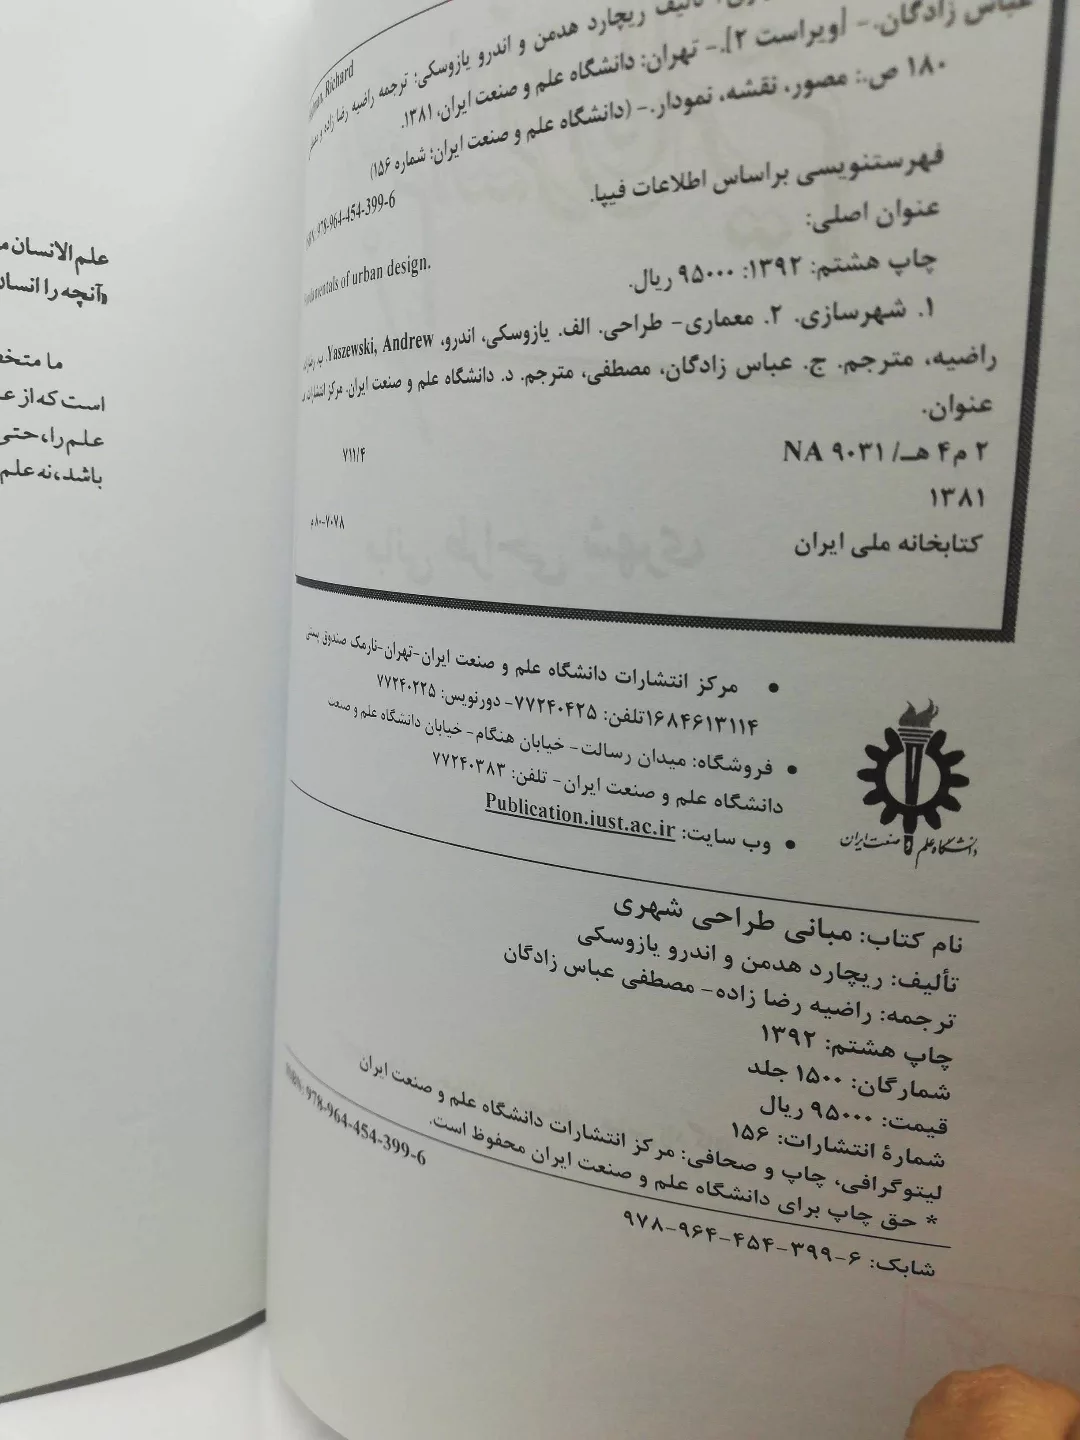 علم الانسان
«آنچه را انسان
ما
است که از
علم را، حتی
باشد، نه علم
Richard
تألیف ریچارد هدمن و اندرو یازوسکی؛ ترجمه راضیه رضا زاده و
عباس زادگان.- [ویراست ۲].- تهران: دانشگاه علم و صنعت ایران، ۱۳۸۱.
۱۸۰ ص.: مصور، نقشه، نمودار.- (دانشگاه علم و صنعت ایران؛ شماره ۱۵۶)
978-964-454-399-6
فهرستنویسی براساس اطلاعات فیپا.
عنوان اصلی:
of urban design.
چاپ هشتم: ۱۳۹۲: ۹۵۰۰۰ ریال.
۱. شهرسازی. ۲. معماری- طراحی. الف. یازوسکی، اندرو، Yaszewski, Andrew. ب.
راضیه، مترجم. ج. عباس زادگان، مصطفی، مترجم. د. دانشگاه علم و صنعت ایران. مرکز انتشارات.
عنوان.
۲ م۴ هـ/ NA ۹۰۳۱
۷۱۱/۴
۱۳۸۱
۸۰-۷۰۷۸م
کتابخانه ملی ایران
• مرکز انتشارات دانشگاه علم و صنعت ایران-تهران-نارمک صندوق پستی
۱۶۸۴۶۱۳۱۱۴تلفن: ۷۷۲۴۰۴۲۵- دورنویس: ۷۷۲۴۰۲۲۵
• فروشگاه: میدان رسالت- خیابان هنگام- خیابان دانشگاه علم و صنعت
دانشگاه علم و صنعت ایران- تلفن: ۷۷۲۴۰۳۸۳
• وب سایت: Publication.iust.ac.ir
دانشگاه علم و صنعت ایران
نام کتاب: مبانی طراحی شهری
تألیف: ریچارد هدمن و اندرو یازوسکی
ترجمه: راضیه رضا زاده- مصطفی عباس زادگان
چاپ هشتم: ۱۳۹۲
شمارگان: ۱۵۰۰ جلد
قیمت: ۹۵۰۰۰ ریال
شمارهٔ انتشارات: ۱۵۶
لیتوگرافی، چاپ و صحافی: مرکز انتشارات دانشگاه علم و صنعت ایران
* حق چاپ برای دانشگاه علم و صنعت ایران محفوظ است.
ISBN: 978-964-454-399-6
شابک: ۶-۳۹۹-۴۵۴-۹۶۴-۹۷۸